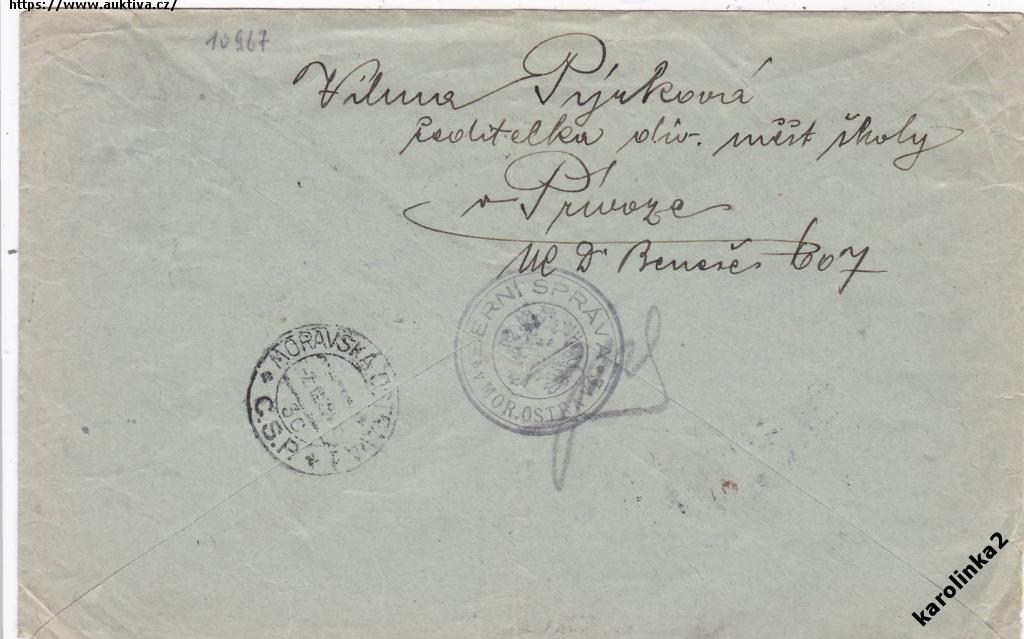 https://www.auktiva.cz/
10967
Vilma Pýrková
ředitelka dív. měšt školy
v Přívoze
Ul Dr Beneše 607
MORAVSKÁ OSTRAVA 1
Č.S.P.
BERNÍ SPRÁVA
V MOR. OSTRAVĚ
karolinka2